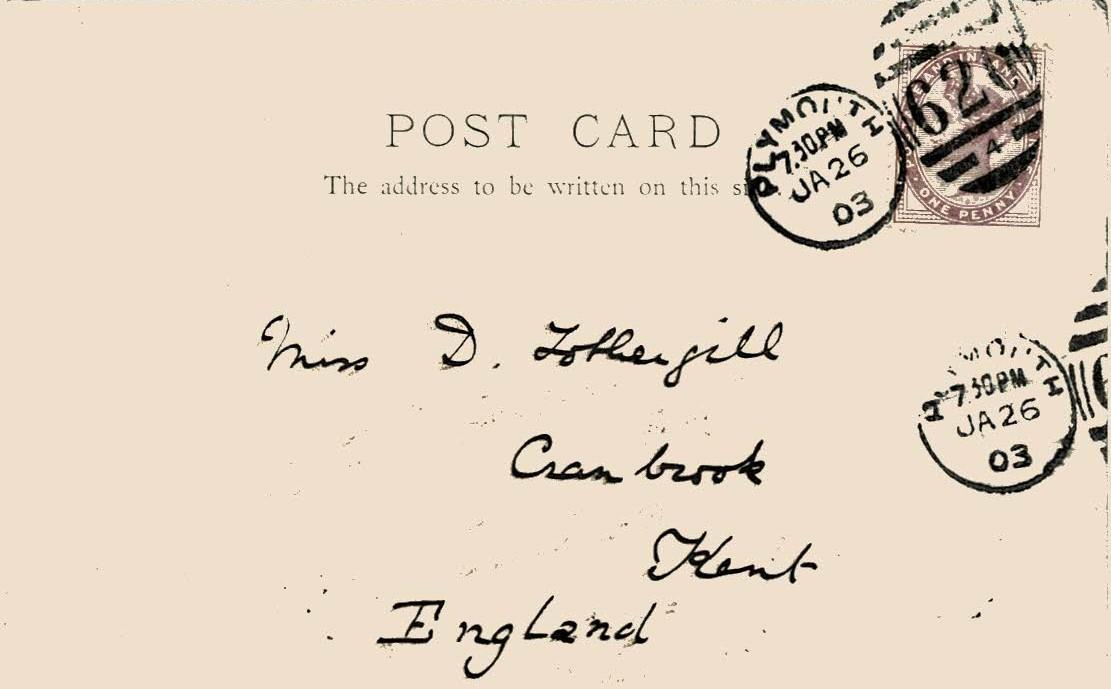 POST CARD
The address to be written on this
PLYMOUTH
7.30PM
JA 26
03
62
4
ONE PENNY
Miss D. Fothergill
Cranbrook
Kent
England
7.30PM
JA 26
03